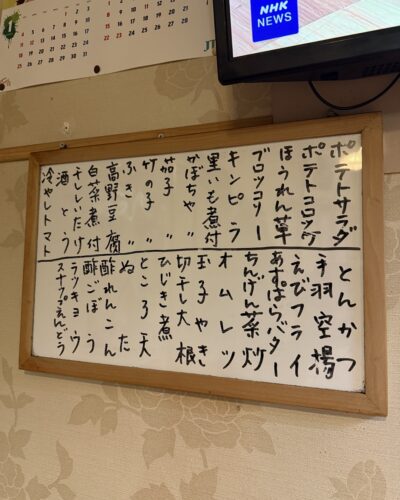 NHK
NEWS
ポテトサラダ
ポテトコロッケ
ほうれん草
ブロッコリー
キンピラ
里いも煮付
かぼちゃ〃
茄子〃
竹の子〃
ふき〃
高野豆腐
白菜煮付
干しいたけ
酒とう
冷やしトマト
とんかつ
手羽空揚
えびフライ
あすぱらバター
ちんげん菜炒
オムレツ
玉子やき
切干大根
ひじき煮
ところ天
ぬた
酢れんこん
酢ごぼう
ラッキョウ
スナップえんどう